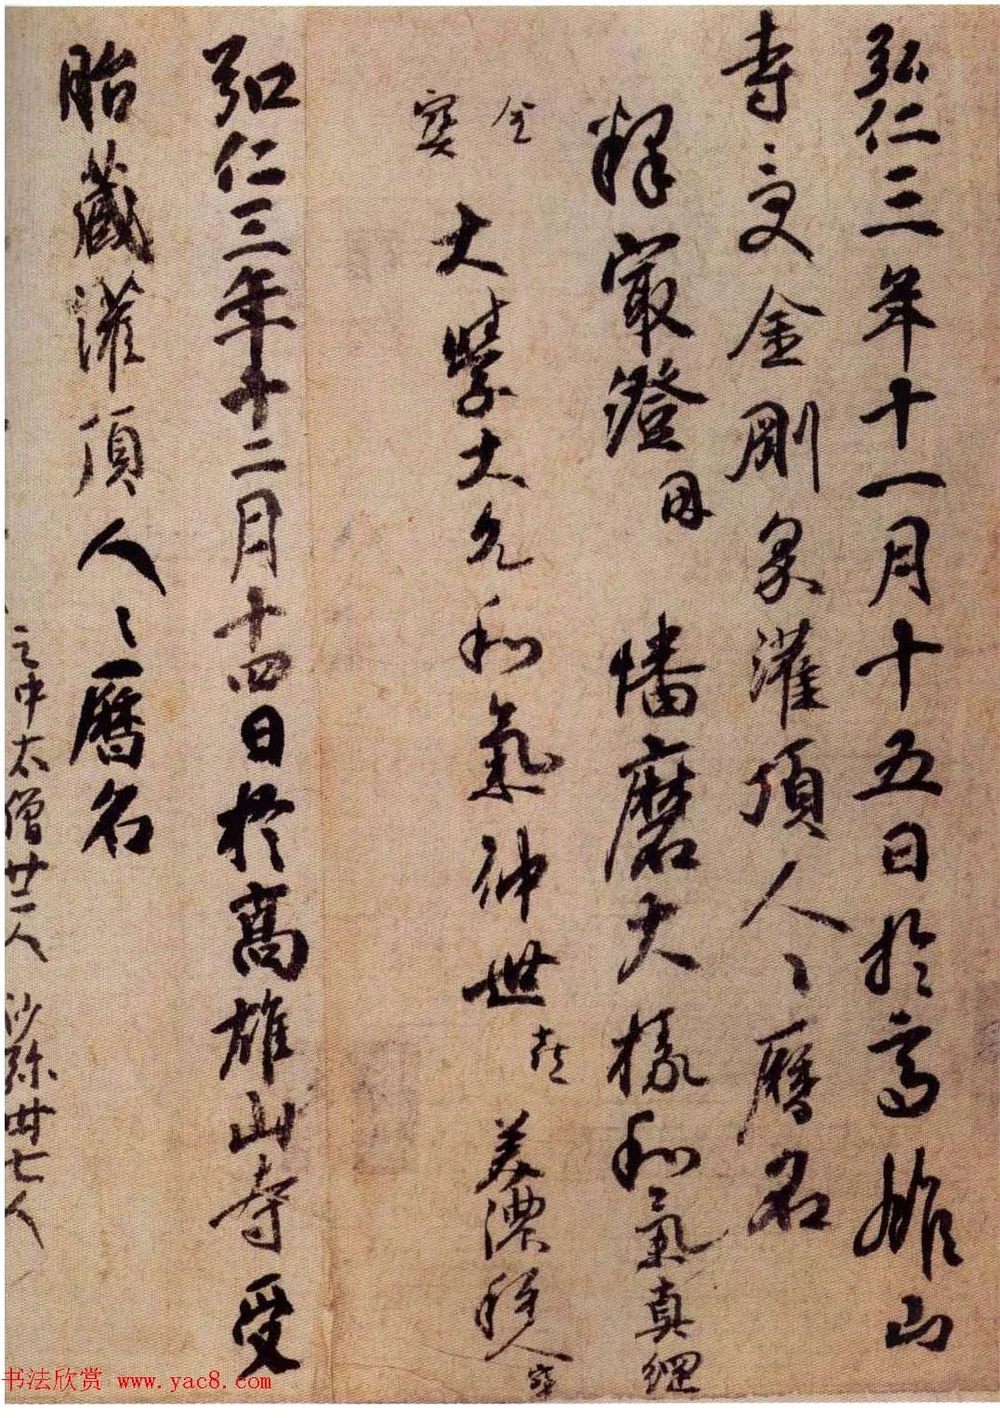 弘仁三年十一月十五日於高雄山
寺受金剛界灌頂人々暦名
釋最澄因 幡磨大掾和氣真綱
金
寶
大學大允和氣仲世喜 美濃種人寶
弘仁三年十二月十四日於高雄山寺受
胎藏灌頂人々暦名
之中太僧廿二人 沙弥卅七人
书法欣赏 www.yac8.com